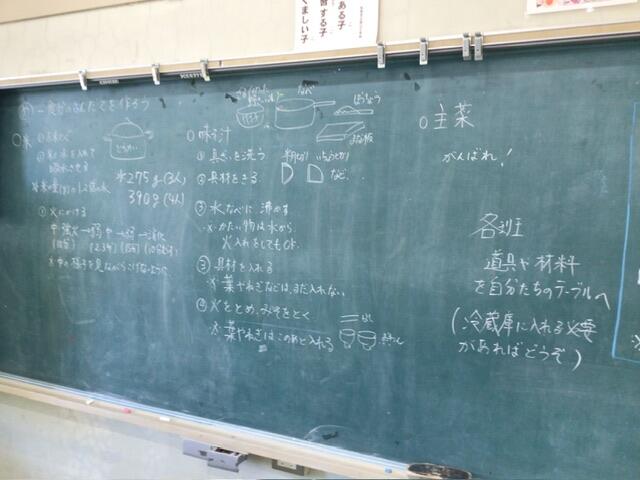 ある子
する子
くましい子
一食分のこんだてを作ろう
○米
①お米をとぐ
②米と水を入れて
吸水させる
※米の重さ(g)の1.2倍の水
米275g(3人)
390g(4人)
③火にかける
※中の様子を見ながらこげないように
○味そ汁
なべ
ほうちょう
まな板
①具ざいを洗う
②具材をきる
半月切り いちょう切り
など、
③水なべに沸かす
※かたい物は水から
火入れをしてもOK
③具材を入れる
※葉やねぎなどは、まだ入れない
④火をとめ、みそをとく
※葉やねぎはこのあと入れる
はし
おわん
○主菜
がんばれ!
各班
道具や材料
を自分たちのテーブルへ
(冷蔵庫に入れる必要
があればどうぞ)